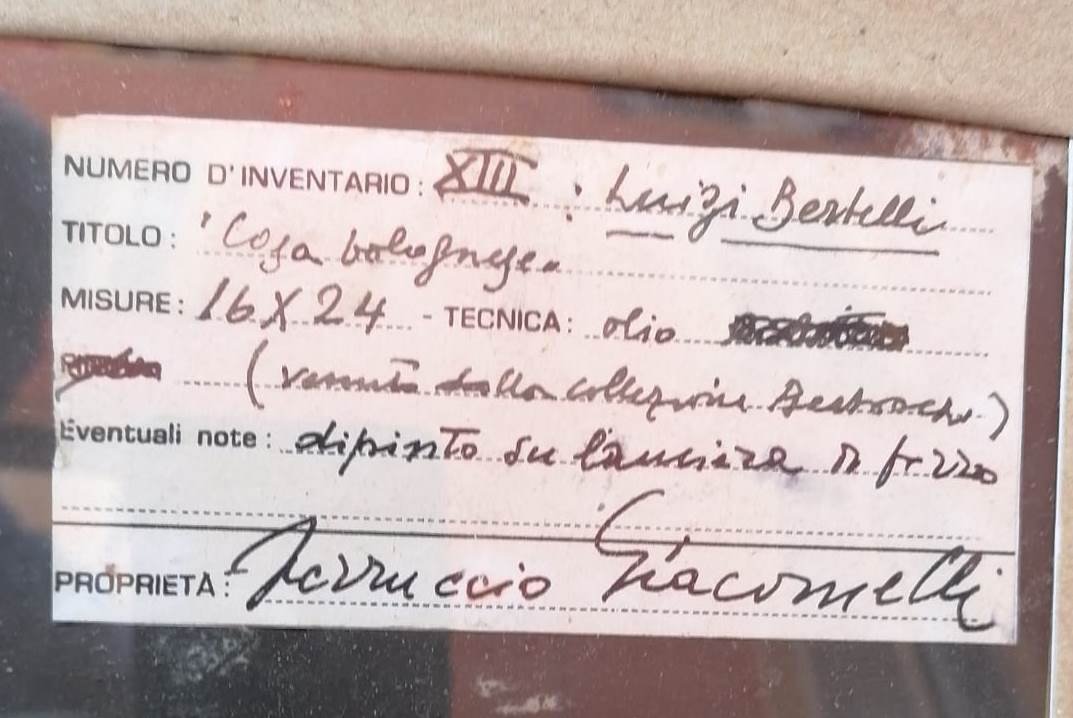 NUMERO D'INVENTARIO: XIII : Luigi Bertelli
TITOLO: 'Casa bolognese.
MISURE: 16 X 24 - TECNICA: olio
(venuta dalla collezione
Eventuali note: dipinto su lamiera
PROPRIETÀ: Ferruccio Giacomelli